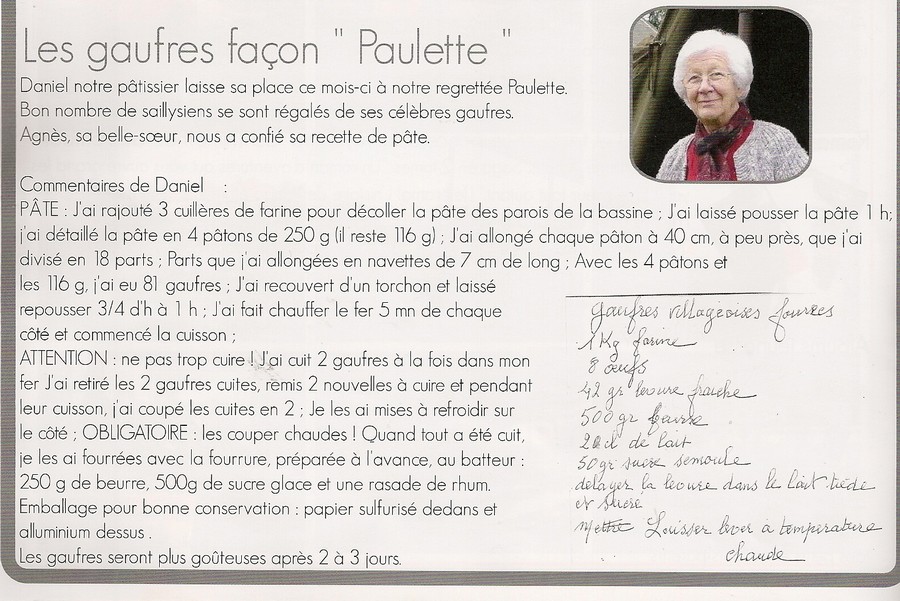 Les gaufres façon " Paulette "
Daniel notre pâtissier laisse sa place ce mois-ci à notre regrettée Paulette.
Bon nombre de saillysiens se sont régalés de ses célèbres gaufres.
Agnès, sa belle-sœur, nous a confié sa recette de pâte.
Commentaires de Daniel :
PÂTE : J'ai rajouté 3 cuillères de farine pour décoller la pâte des parois de la bassine ; J'ai laissé pousser la pâte 1 h;
j'ai détaillé la pâte en 4 pâtons de 250 g (il reste 116 g) ; J'ai allongé chaque pâton à 40 cm, à peu près, que j'ai
divisé en 18 parts ; Parts que j'ai allongées en navettes de 7 cm de long ; Avec les 4 pâtons et
les 116 g, j'ai eu 81 gaufres ; J'ai recouvert d'un torchon et laissé
repousser 3/4 d'h à 1 h ; J'ai fait chauffer le fer 5 mn de chaque
côté et commencé la cuisson ;
ATTENTION : ne pas trop cuire ! J'ai cuit 2 gaufres à la fois dans mon
fer J'ai retiré les 2 gaufres cuites, remis 2 nouvelles à cuire et pendant
leur cuisson, j'ai coupé les cuites en 2 ; Je les ai mises à refroidir sur
le côté ; OBLIGATOIRE : les couper chaudes ! Quand tout a été cuit,
je les ai fourrées avec la fourrure, préparée à l'avance, au batteur :
250 g de beurre, 500g de sucre glace et une rasade de rhum.
Emballage pour bonne conservation : papier sulfurisé dedans et
alluminium dessus .
Les gaufres seront plus goûteuses après 2 à 3 jours.
gaufres villageoises fourrées
1 Kg farine
8 œufs
42 gr levure fraiche
500 gr beurre
20 cl de lait
50 gr sucre semoule
delayer la levure dans le lait tiède
et sucré
Mettre Laisser lever à température
chaude